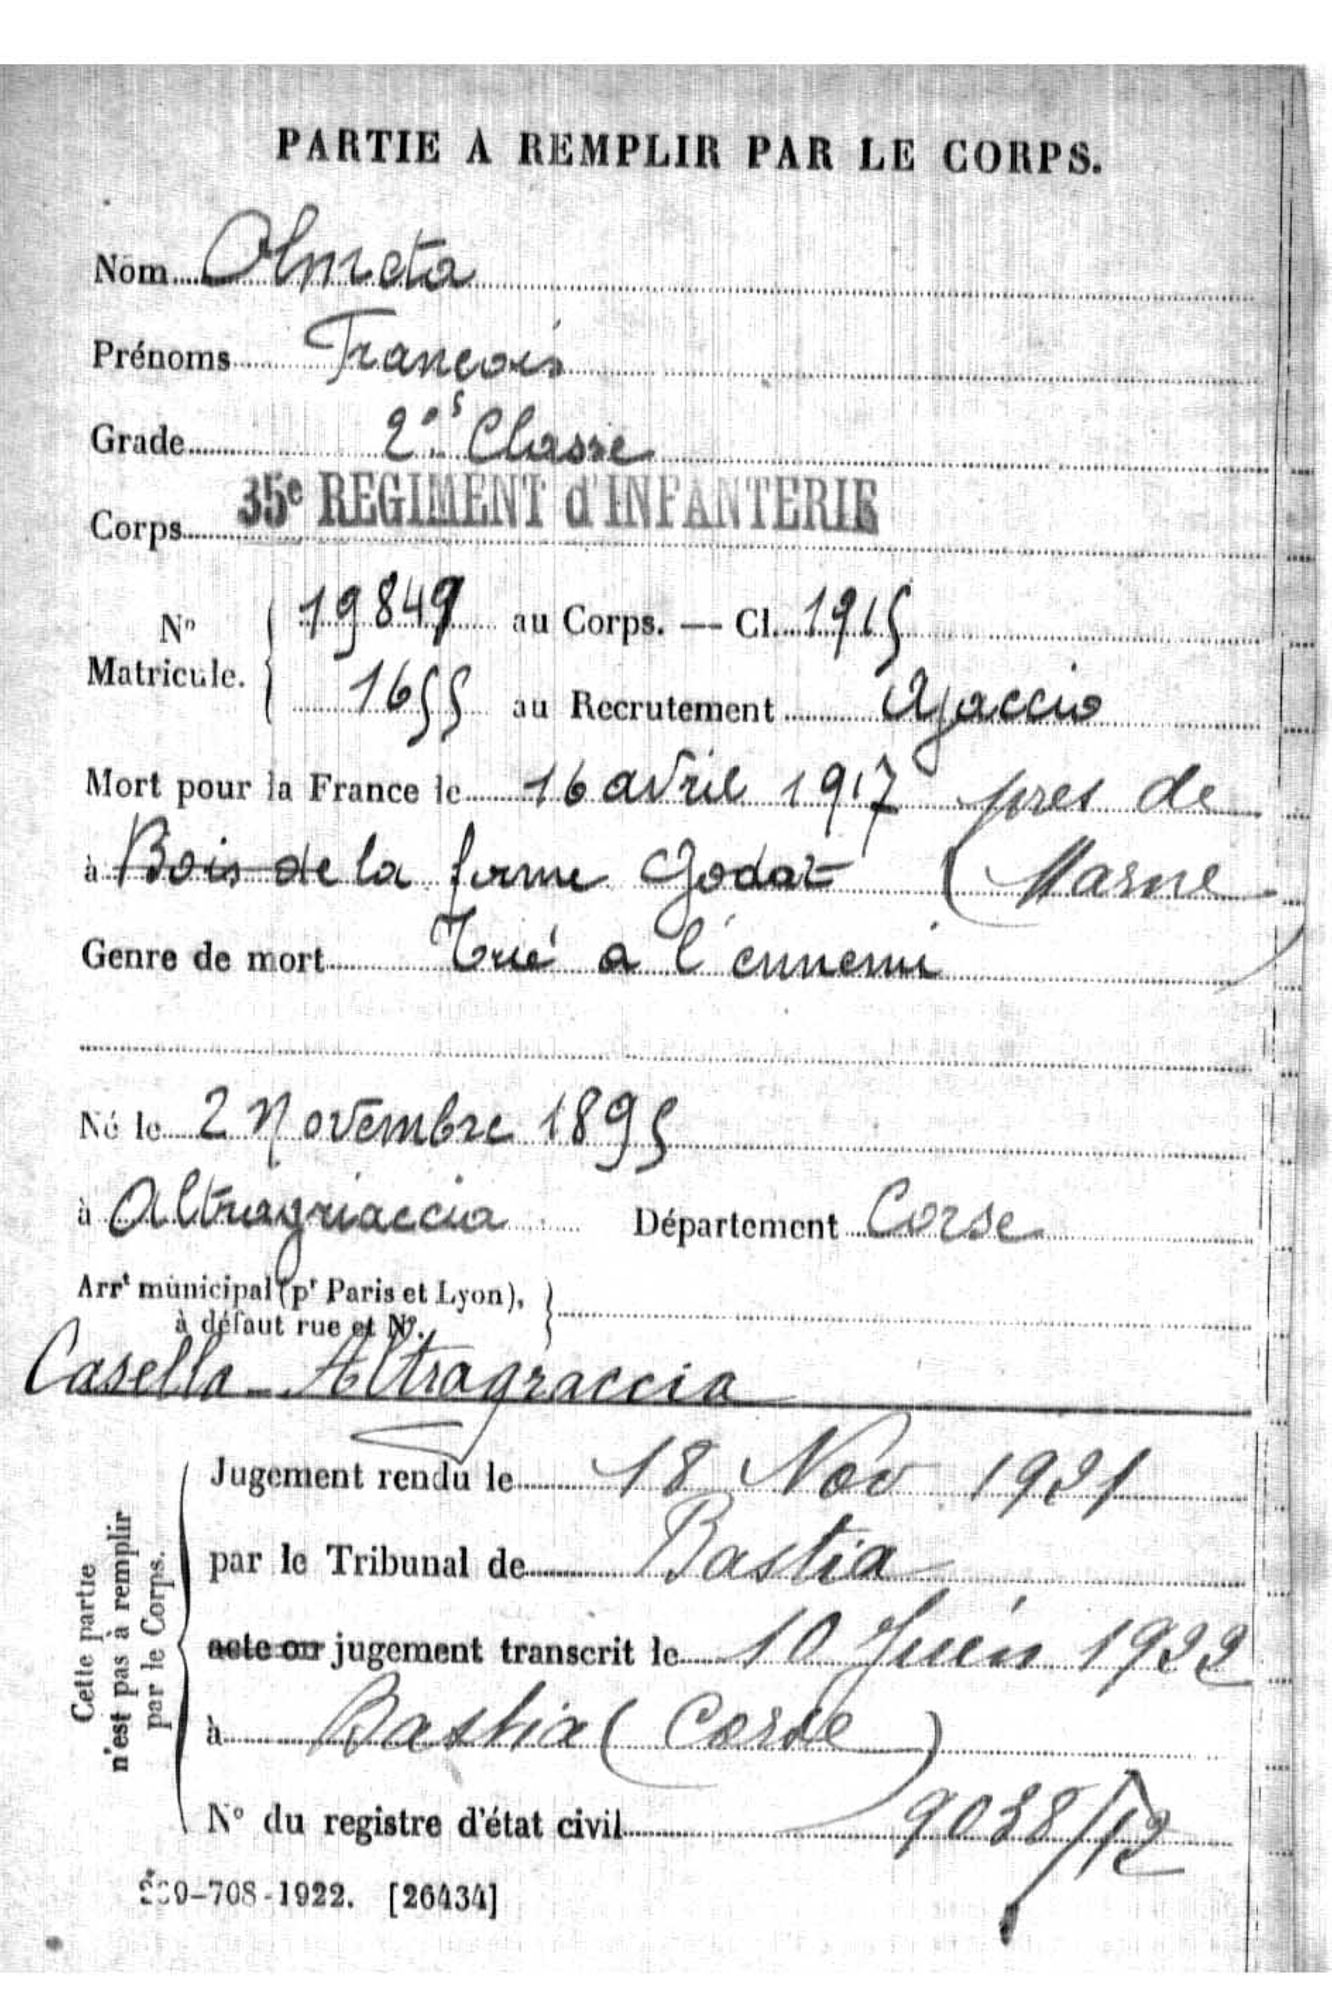 PARTIE A REMPLIR PAR LE CORPS.
Nom Olmeta
Prénoms François
Grade 2e Classe
Corps 35e REGIMENT d'INFANTERIE
No Matricule. { 19849 au Corps. — Cl. 1915
1655 au Recrutement Ajaccio
Mort pour la France le 16 avril 1917 pres de
à Bois de la ferme Godat (Marne)
Genre de mort Tué a l'ennemi
Né le 2 Novembre 1895
à Altragriaccia Département Corse
Arrt municipal (pr Paris et Lyon),
à défaut rue et No. }
Casella Altragraccia
Cette partie
n'est pas à remplir
par le Corps.
Jugement rendu le 18 Nov 1921
par le Tribunal de Bastia
acte ou jugement transcrit le 10 Juin 1922
à Bastia (Corse)
No du registre d'état civil 9038/12
708-1922. [26434]